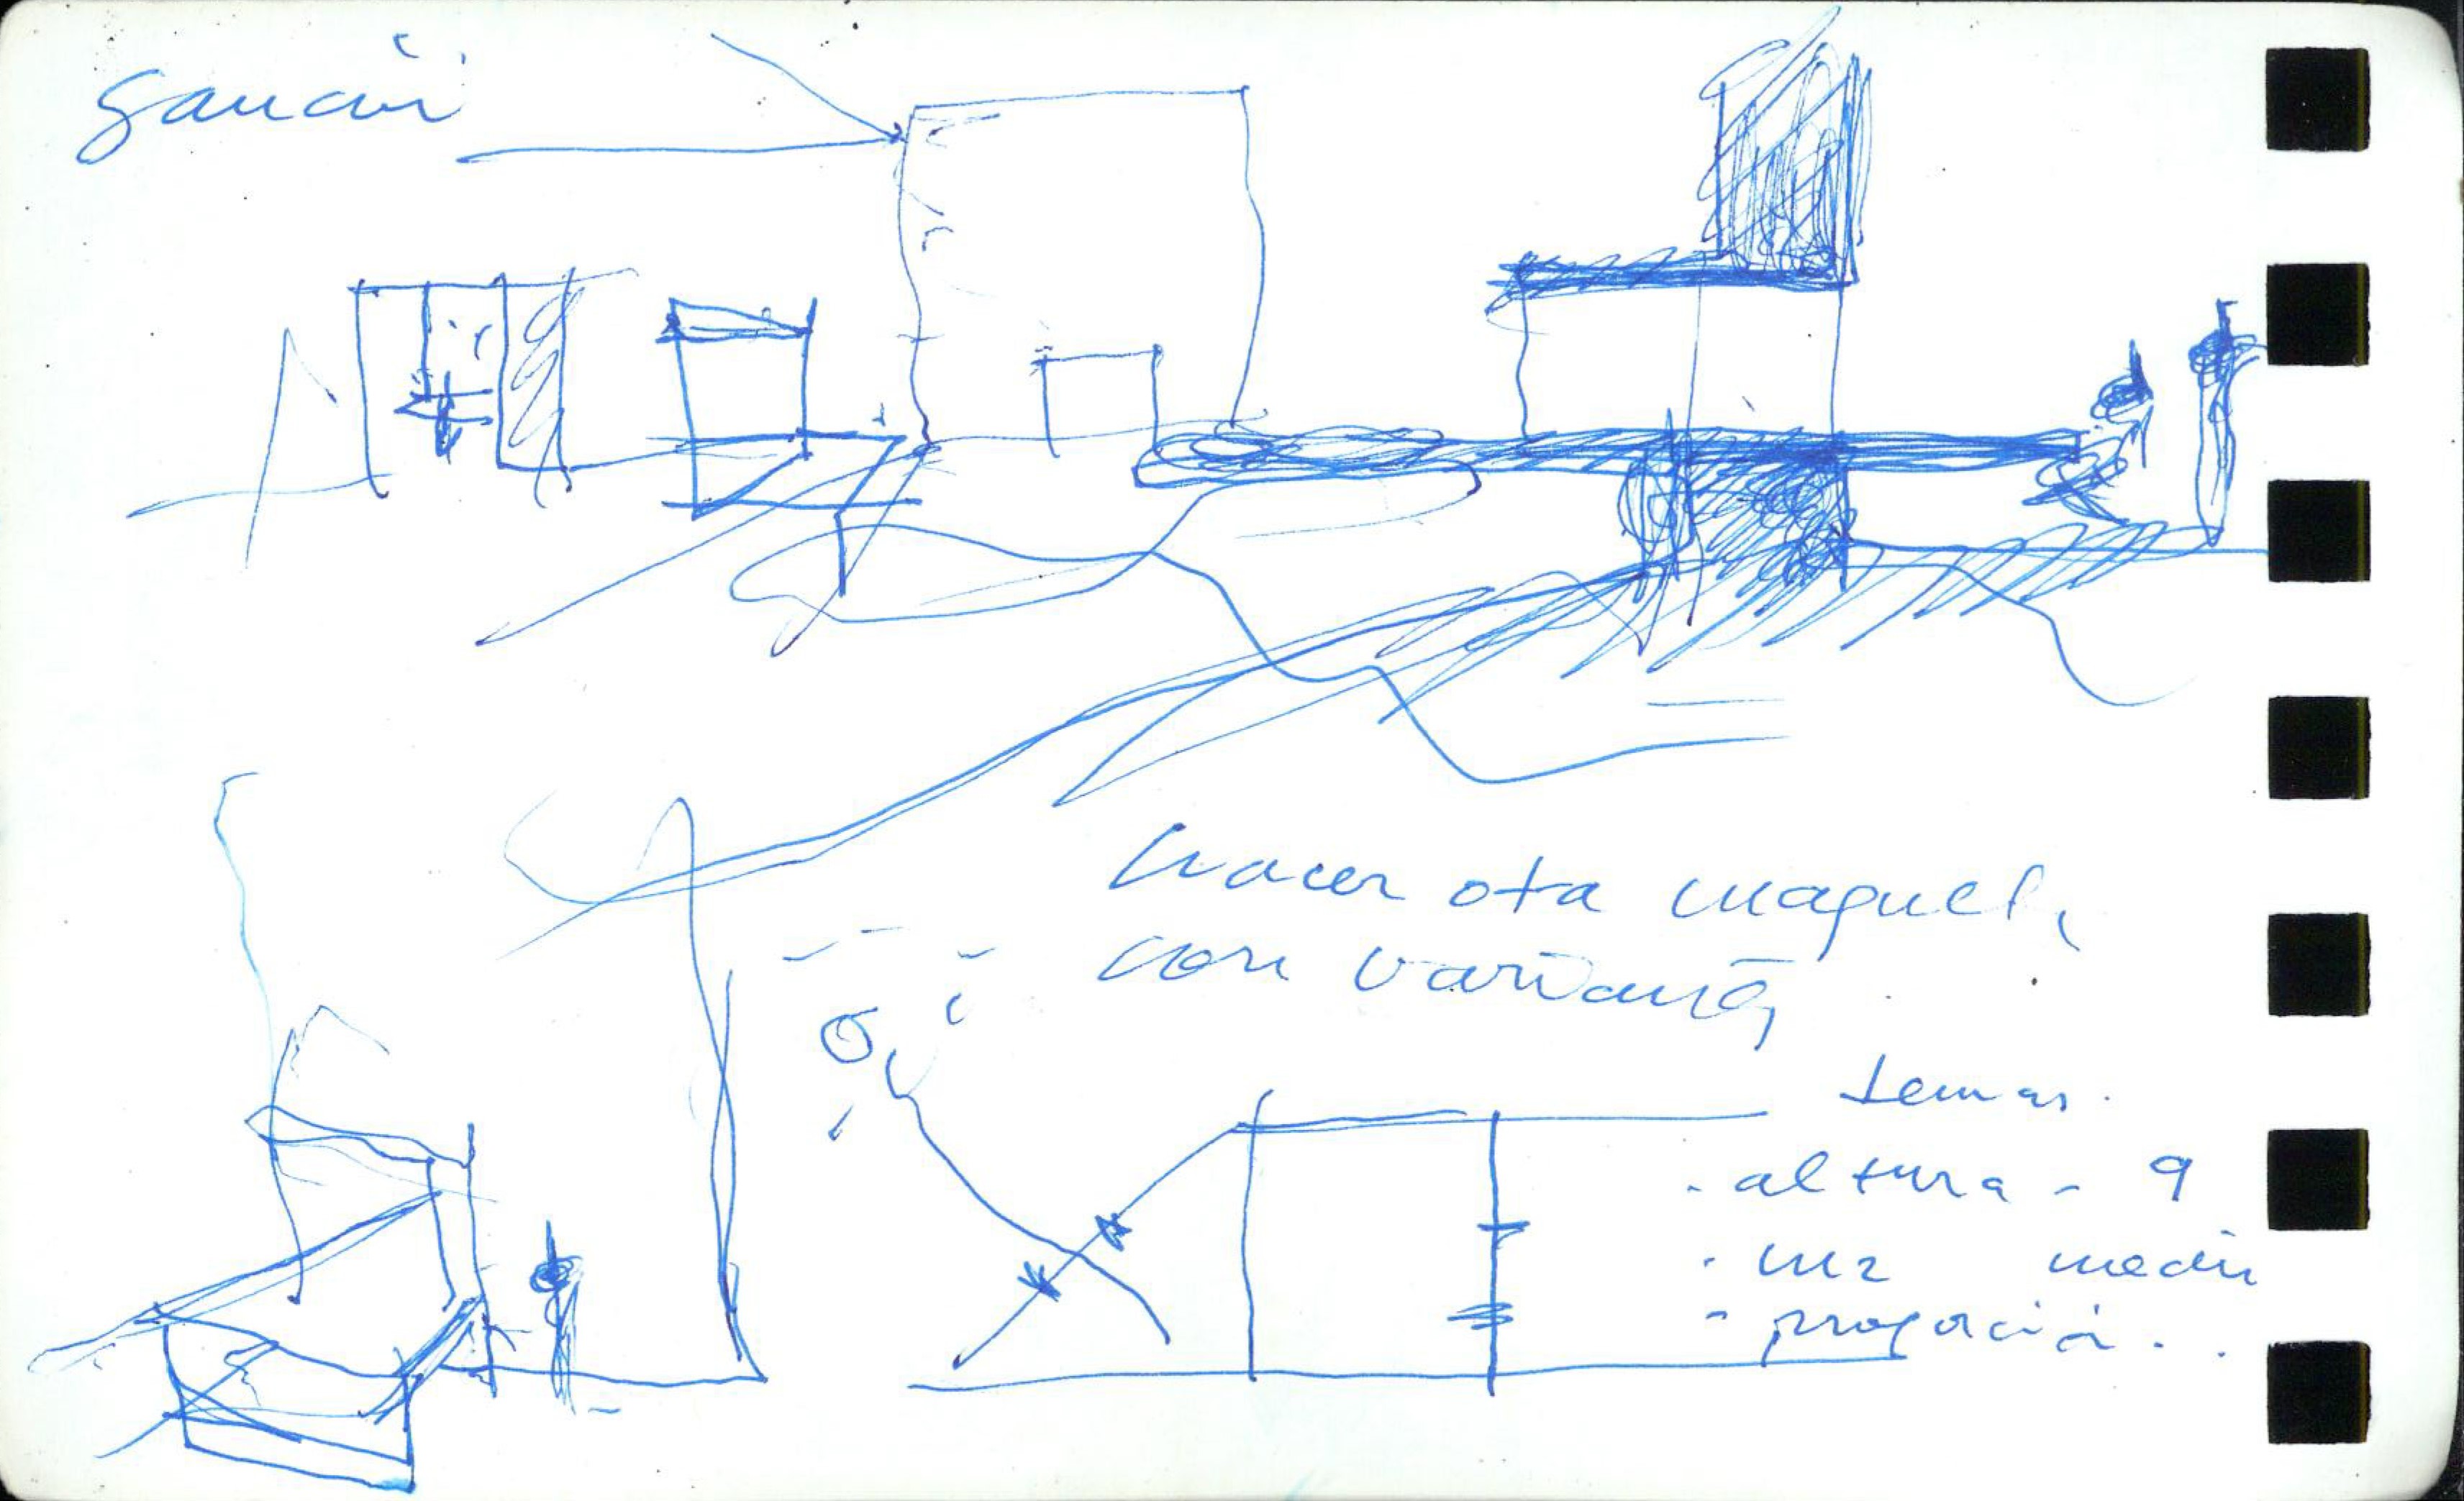 hacer otra maqueta
con variante
temas.
- altura - 9
- luz medi
- proporción..